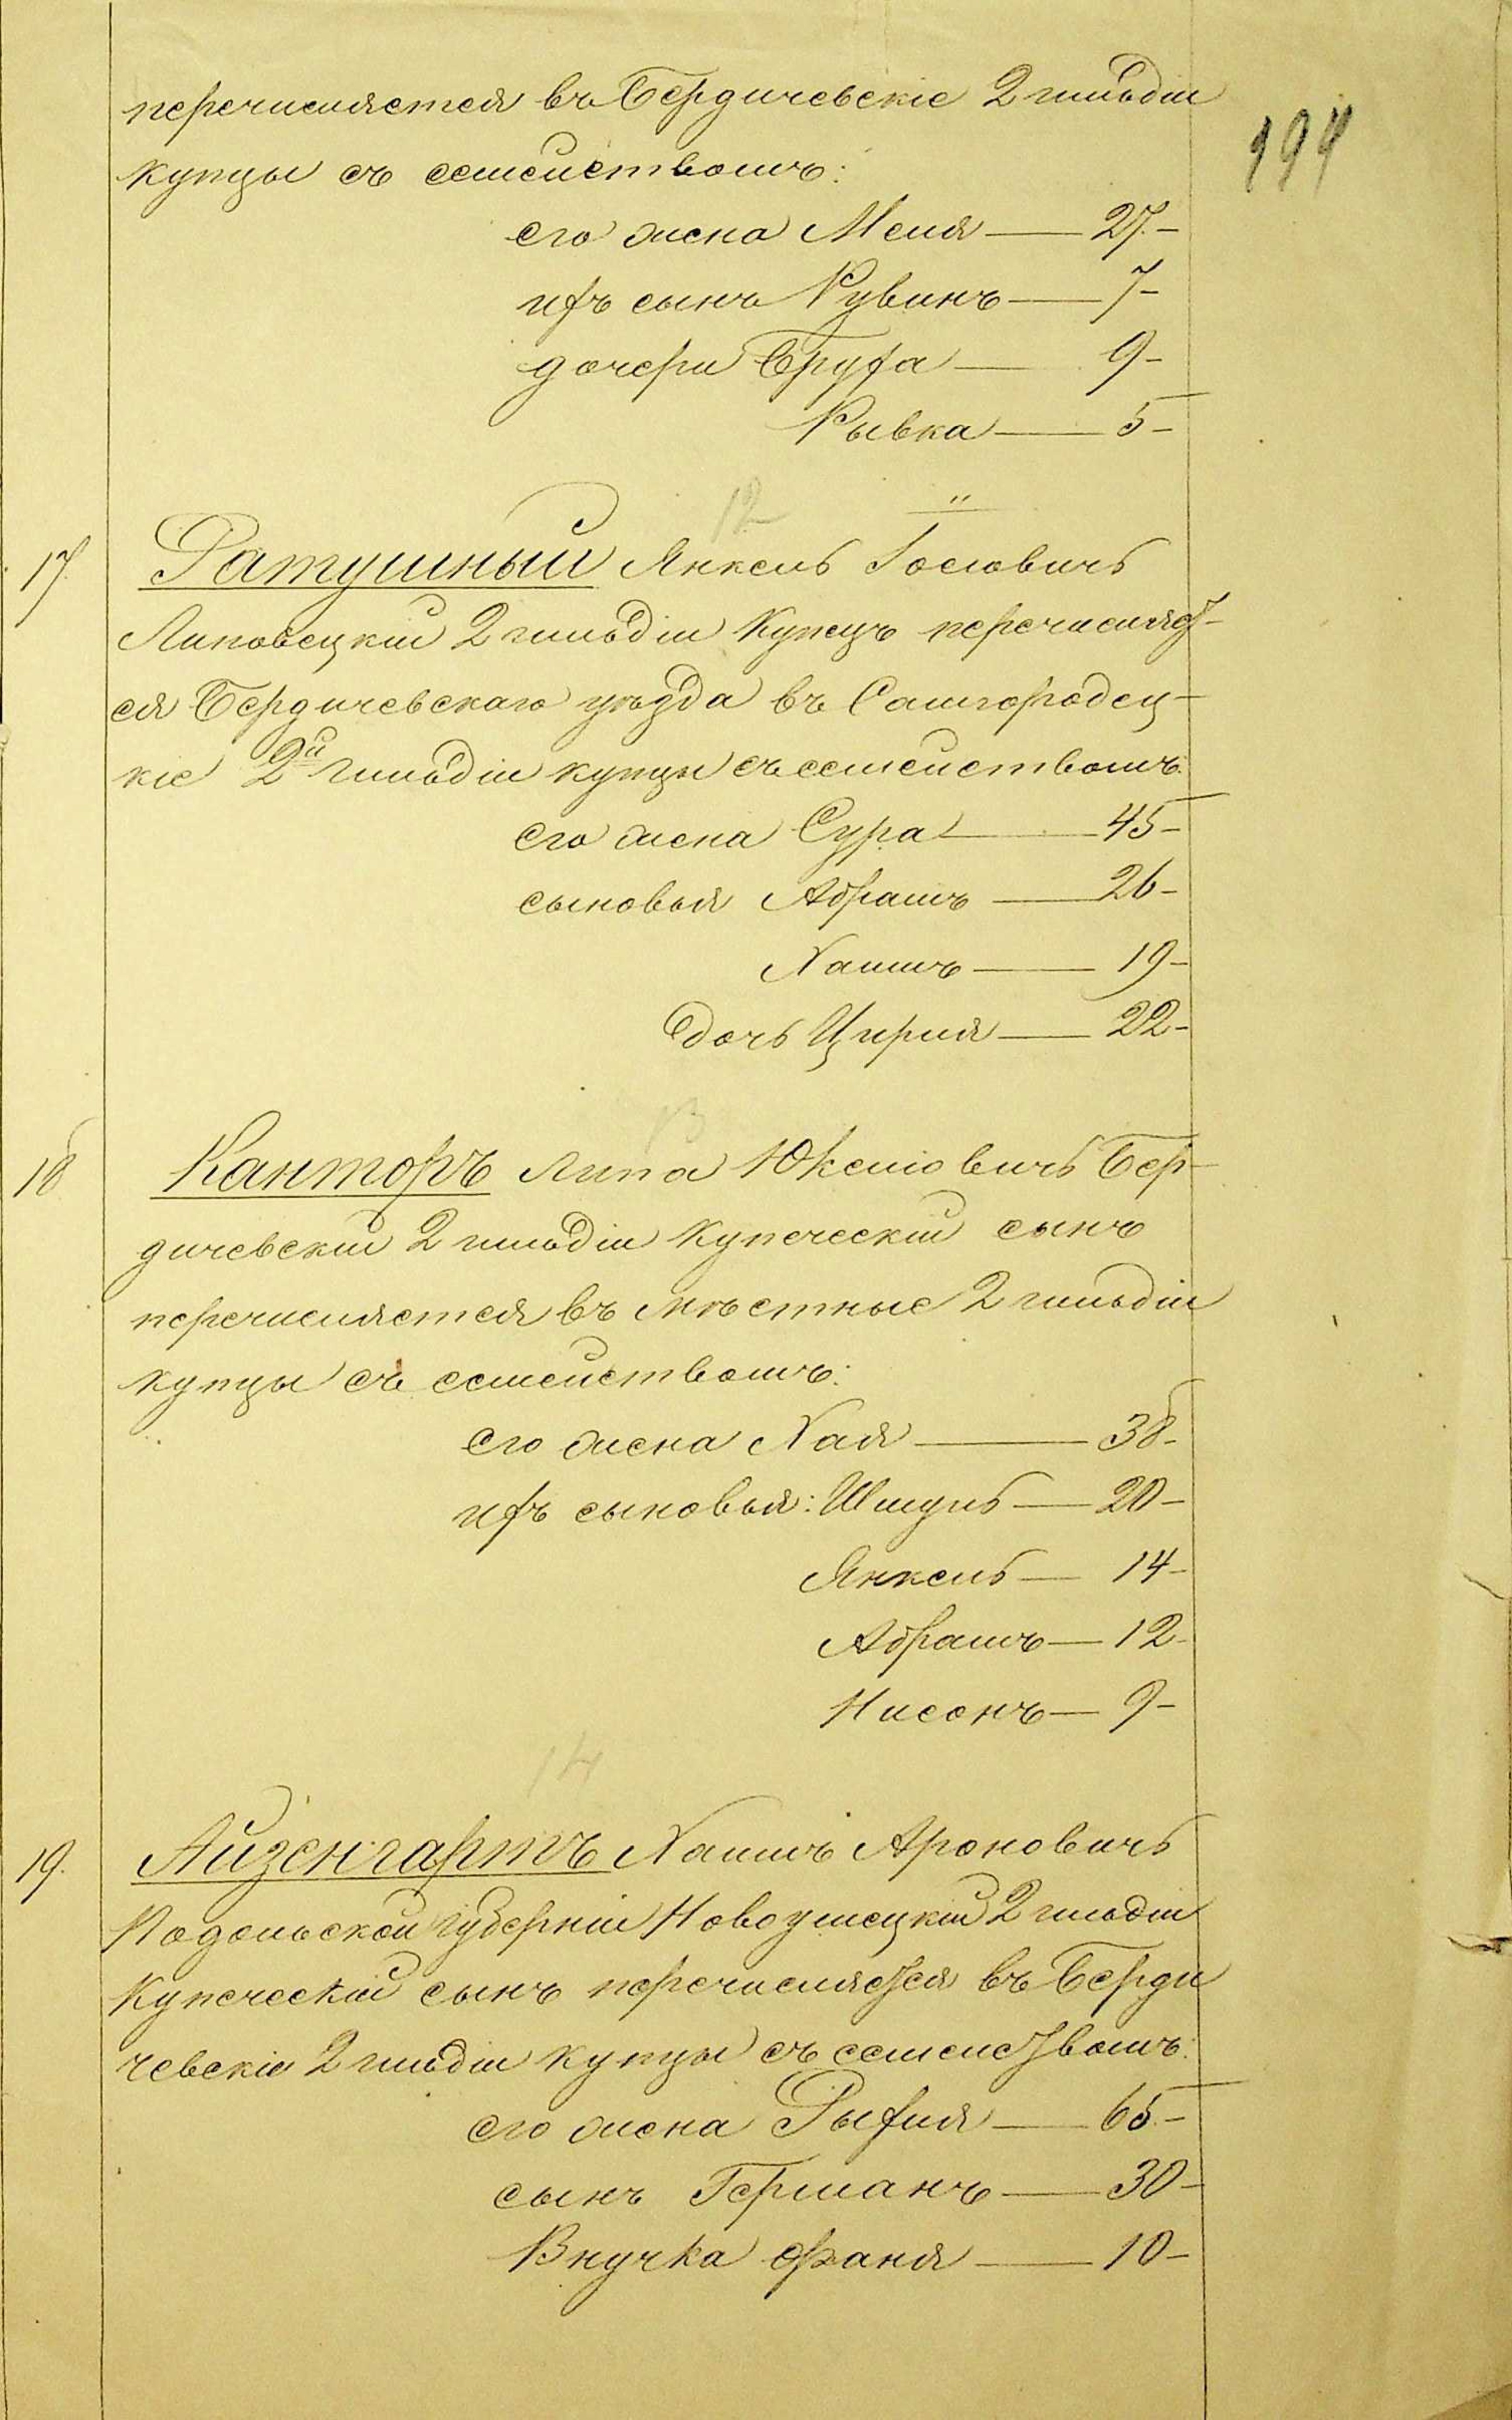 перечисляется въ Бердичевскіе 2 гильдіи
194
купцы съ семействомъ:
его жена Меня — 27 –
ихъ сынъ Рувинъ — 7 –
дочери Бруха — 9 –
Рывка — 5 –
12
17. Ратушный Янкель Іосіовичъ
Липовецкій 2 гильдіи купецъ перечисляет-
ся Бердичевскаго уѣзда въ Самгородец-
кіе 2й гильдіи купцы съ семействомъ:
его жена Сура — 45 –
сыновья Абрамъ — 26 –
Хаимъ — 19 –
дочь Цирля — 22 –
13
18 Канторъ Липа Юкеліовичъ Бер-
дичевскій 2 гильдіи купеческій сынъ
перечисляется въ мѣстные 2 гильдіи
купцы съ семействомъ:
его жена Хая — 38 –
ихъ сыновья: Шмуль — 20 –
Янкель — 14 –
Абрамъ — 12 –
Нисонъ — 9 –
14
19. Айзенгартъ Хаимъ Ароновичъ
Подольской губерніи Новоушецкій 2 гильдіи
купеческій сынъ перечисляется въ Берди
чевскіе 2 гильдіи купцы съ семействомъ:
его жена Рыфля — 65 –
сынъ Германъ — 30 –
Внучка Фаня — 10 –